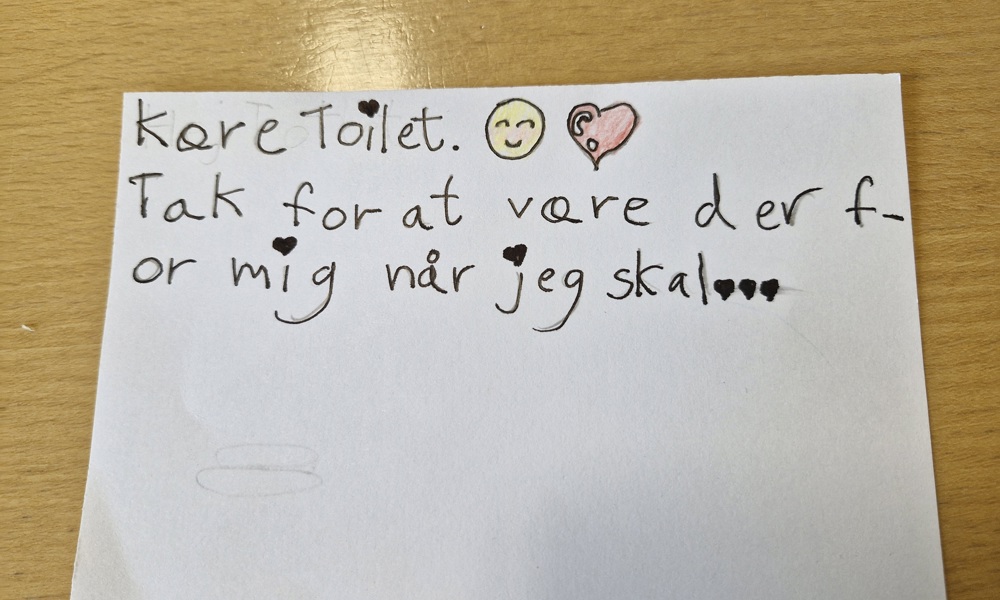 Kære Toilet.
Tak for at være der f-
or mig når jeg skal...